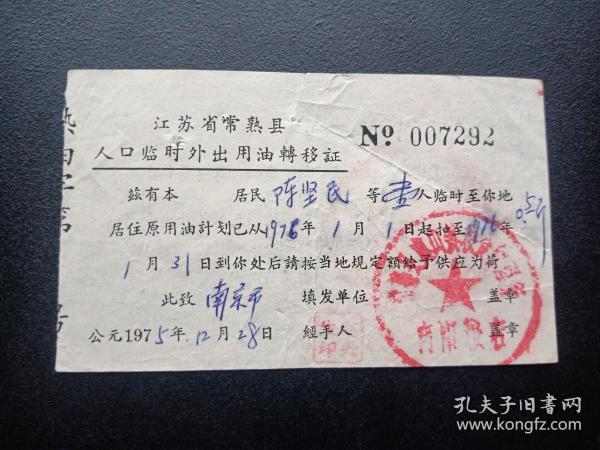 江苏省常熟县
人口临时外出用油轉移証
№ 007292
兹有本 居民 陈坚民 等 壹 人临时至你地
居住原用油計划已从1976年 1 月 1 日起扣至1976年
1 月 31 日到你处后請按当地規定額給予供应为荷
此致 南京市 填发单位 盖章
公元1975年 12 月 28 日 經手人 盖章
孔夫子旧书网
www.kongfz.com